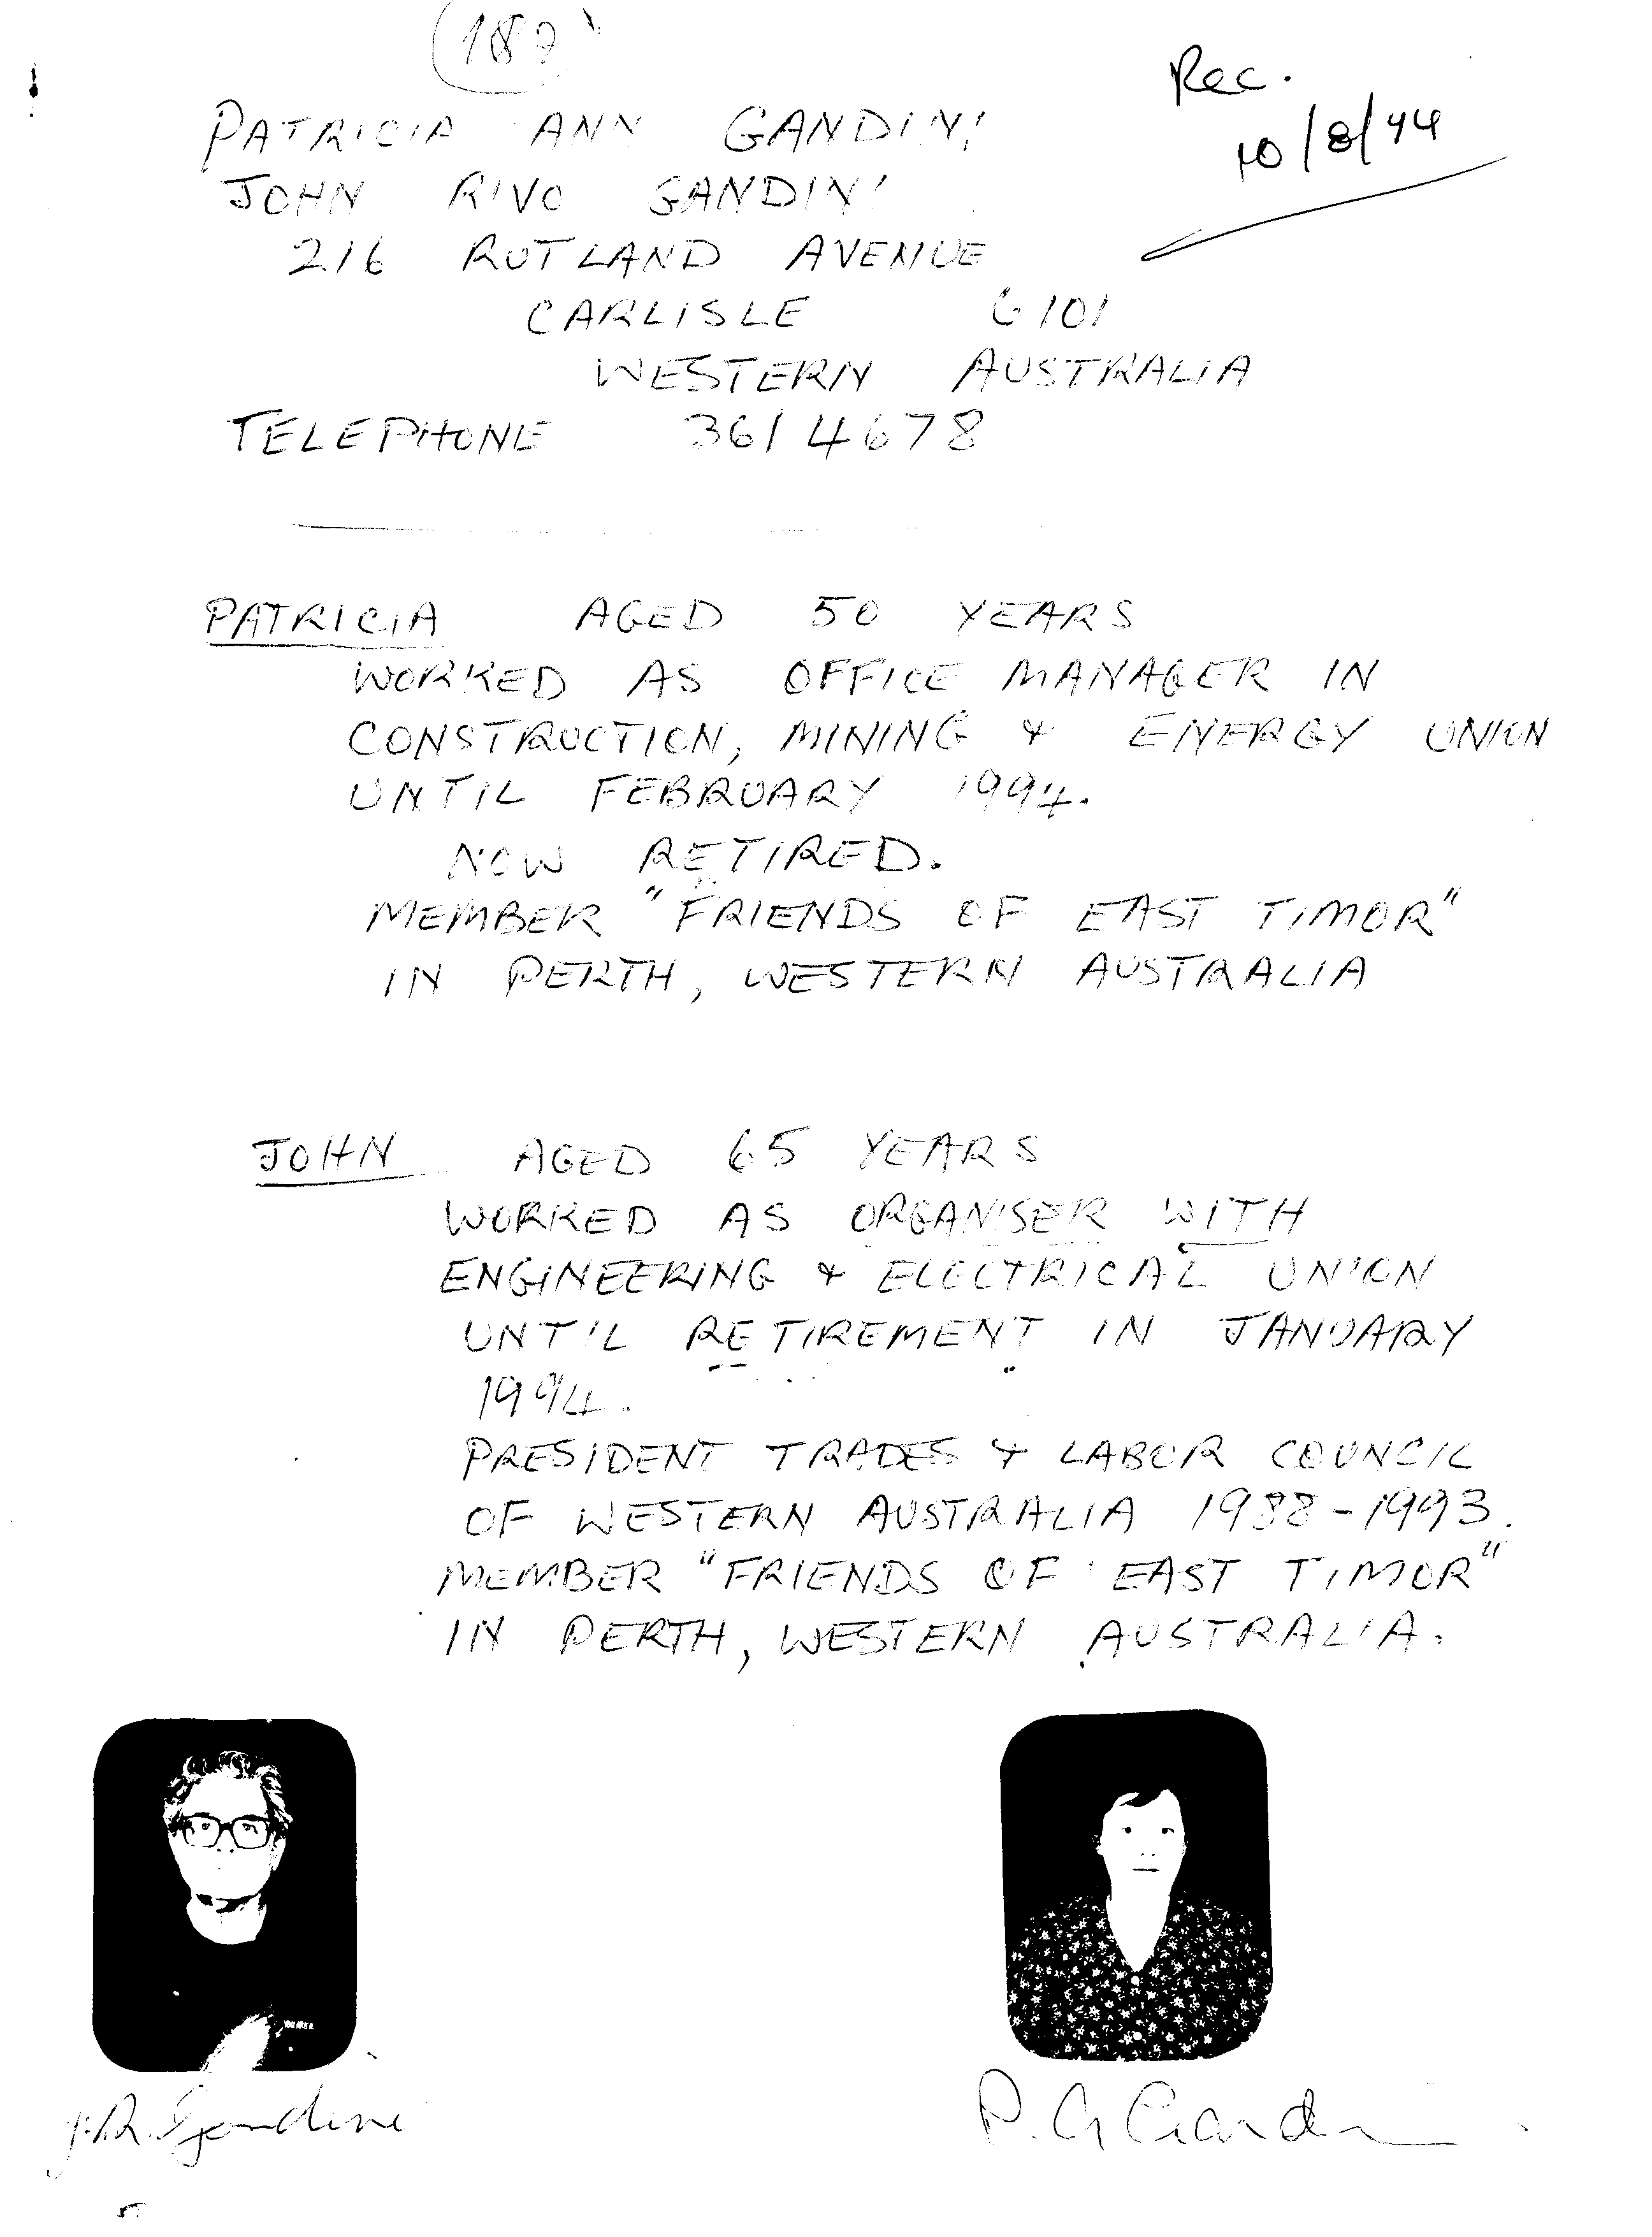 (187)
Rec.
10/8/94
PATRICIA ANN GANDINI
JOHN RIVO GANDINI
216 RUTLAND AVENUE
CARLISLE 6101
WESTERN AUSTRALIA
TELEPHONE 361 4678
PATRICIA AGED 50 YEARS
WORKED AS OFFICE MANAGER IN
CONSTRUCTION, MINING & ENERGY UNION
UNTIL FEBRUARY 1994.
NOW RETIRED.
MEMBER "FRIENDS OF EAST TIMOR"
IN PERTH, WESTERN AUSTRALIA
JOHN AGED 65 YEARS
WORKED AS ORGANISER WITH
ENGINEERING & ELECTRICAL UNION
UNTIL RETIREMENT IN JANUARY
1994.
PRESIDENT TRADES & LABOR COUNCIL
OF WESTERN AUSTRALIA 1988-1993.
MEMBER "FRIENDS OF EAST TIMOR"
IN PERTH, WESTERN AUSTRALIA.
J.R. Gandini
P. A Gandini